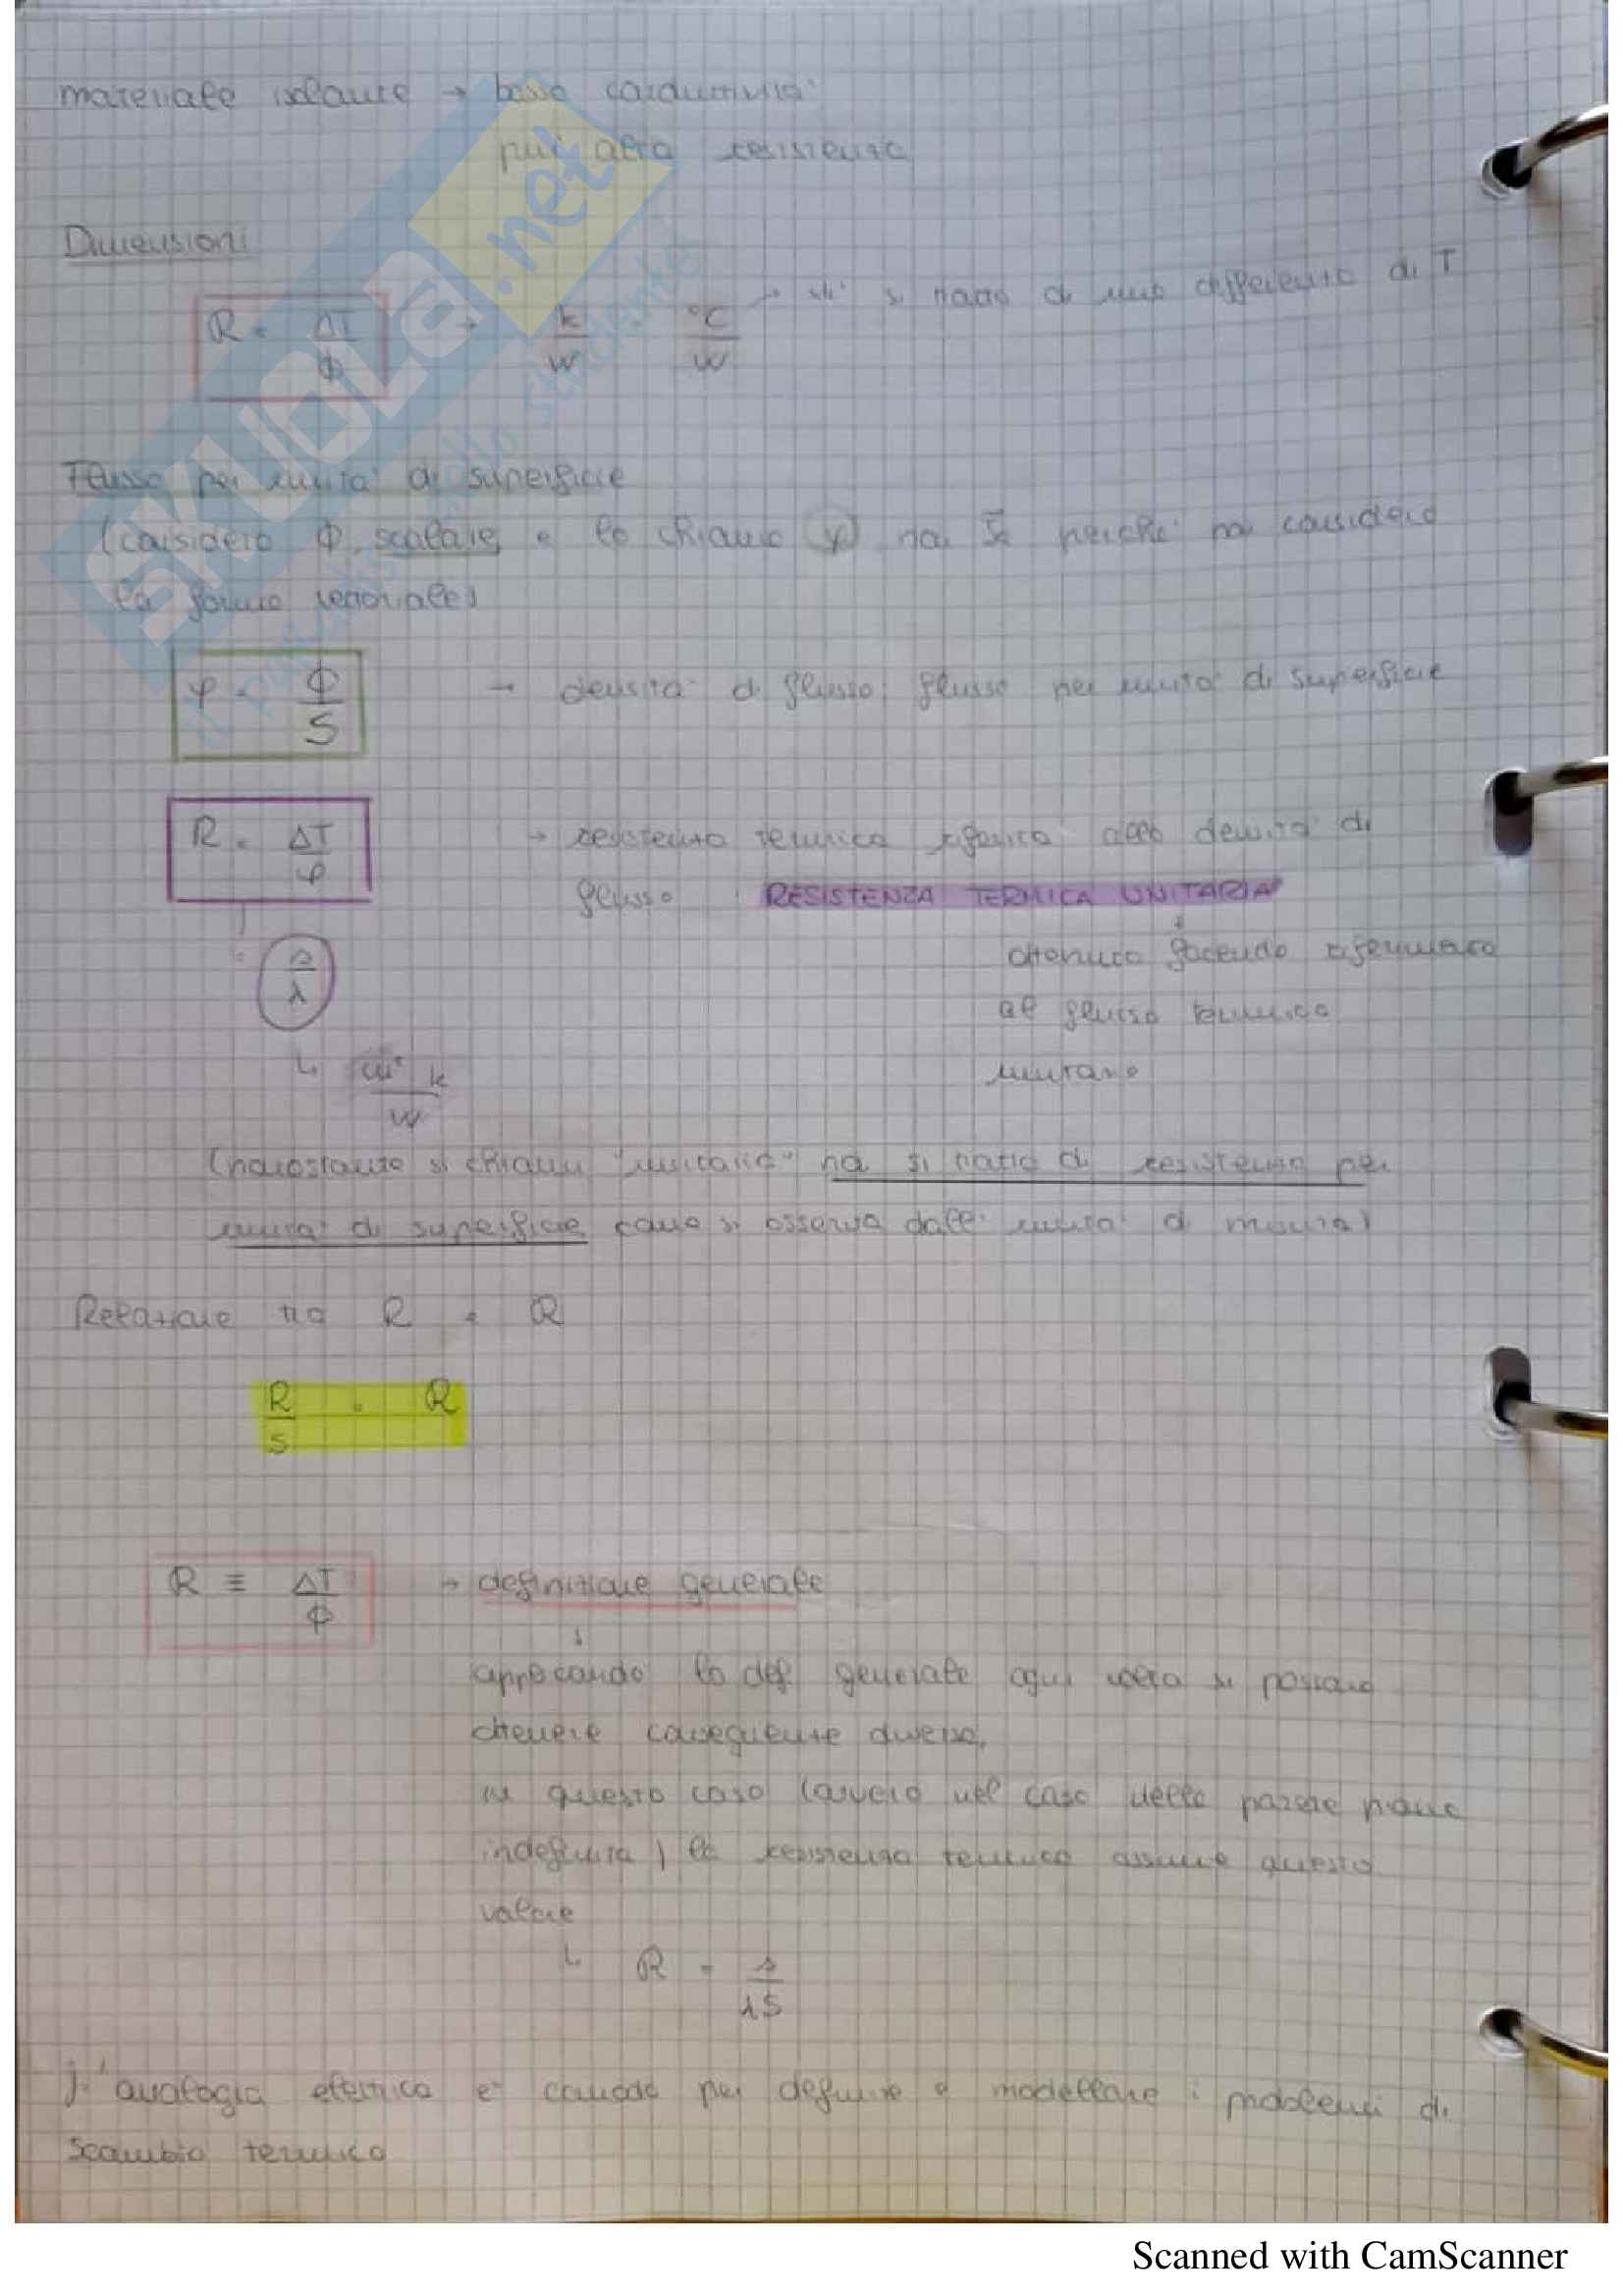 materiale isolante → bassa conduttività
più alta resistenza
Dimensioni
R = ΔT/Φ → K/W = °C/W → si tratta di una differenza di T
Flusso per unità di superficie
(considero Φ scalare e lo chiamo φ non perché non considero
la forma vettoriale)
φ = Φ/S → densità di flusso: flusso per unità di superficie
R = ΔT/φ → resistenza termica riferita alla densità di
flusso : RESISTENZA TERMICA UNITARIA
= s/λ
ottenuta facendo riferimento
al flusso termico
unitario
↳ m² K/W
(nonostante si chiami "unitaria" non si tratta di resistenza per
unità di superficie come si osserva dall' unità di misura)
Relazione tra R e R
R/S = R
R ≡ ΔT/Φ → definizione generale
↓
applicando la def generale ogni volta si possono
ottenere conseguenze diverse,
in questo caso (ovvero nel caso della parete piana
indefinita) la resistenza termica assume questo
valore
↳ R = s/λS
L'analogia elettrica è comoda per definire e modellare i problemi di
scambio termico
SKUOLA.net
il paradiso dello studente
Scanned with CamScanner